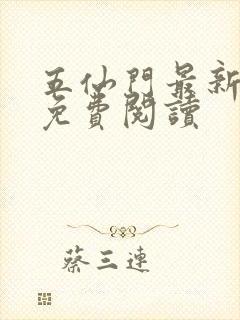 五仙門最新
免費閱讀
蔡三連